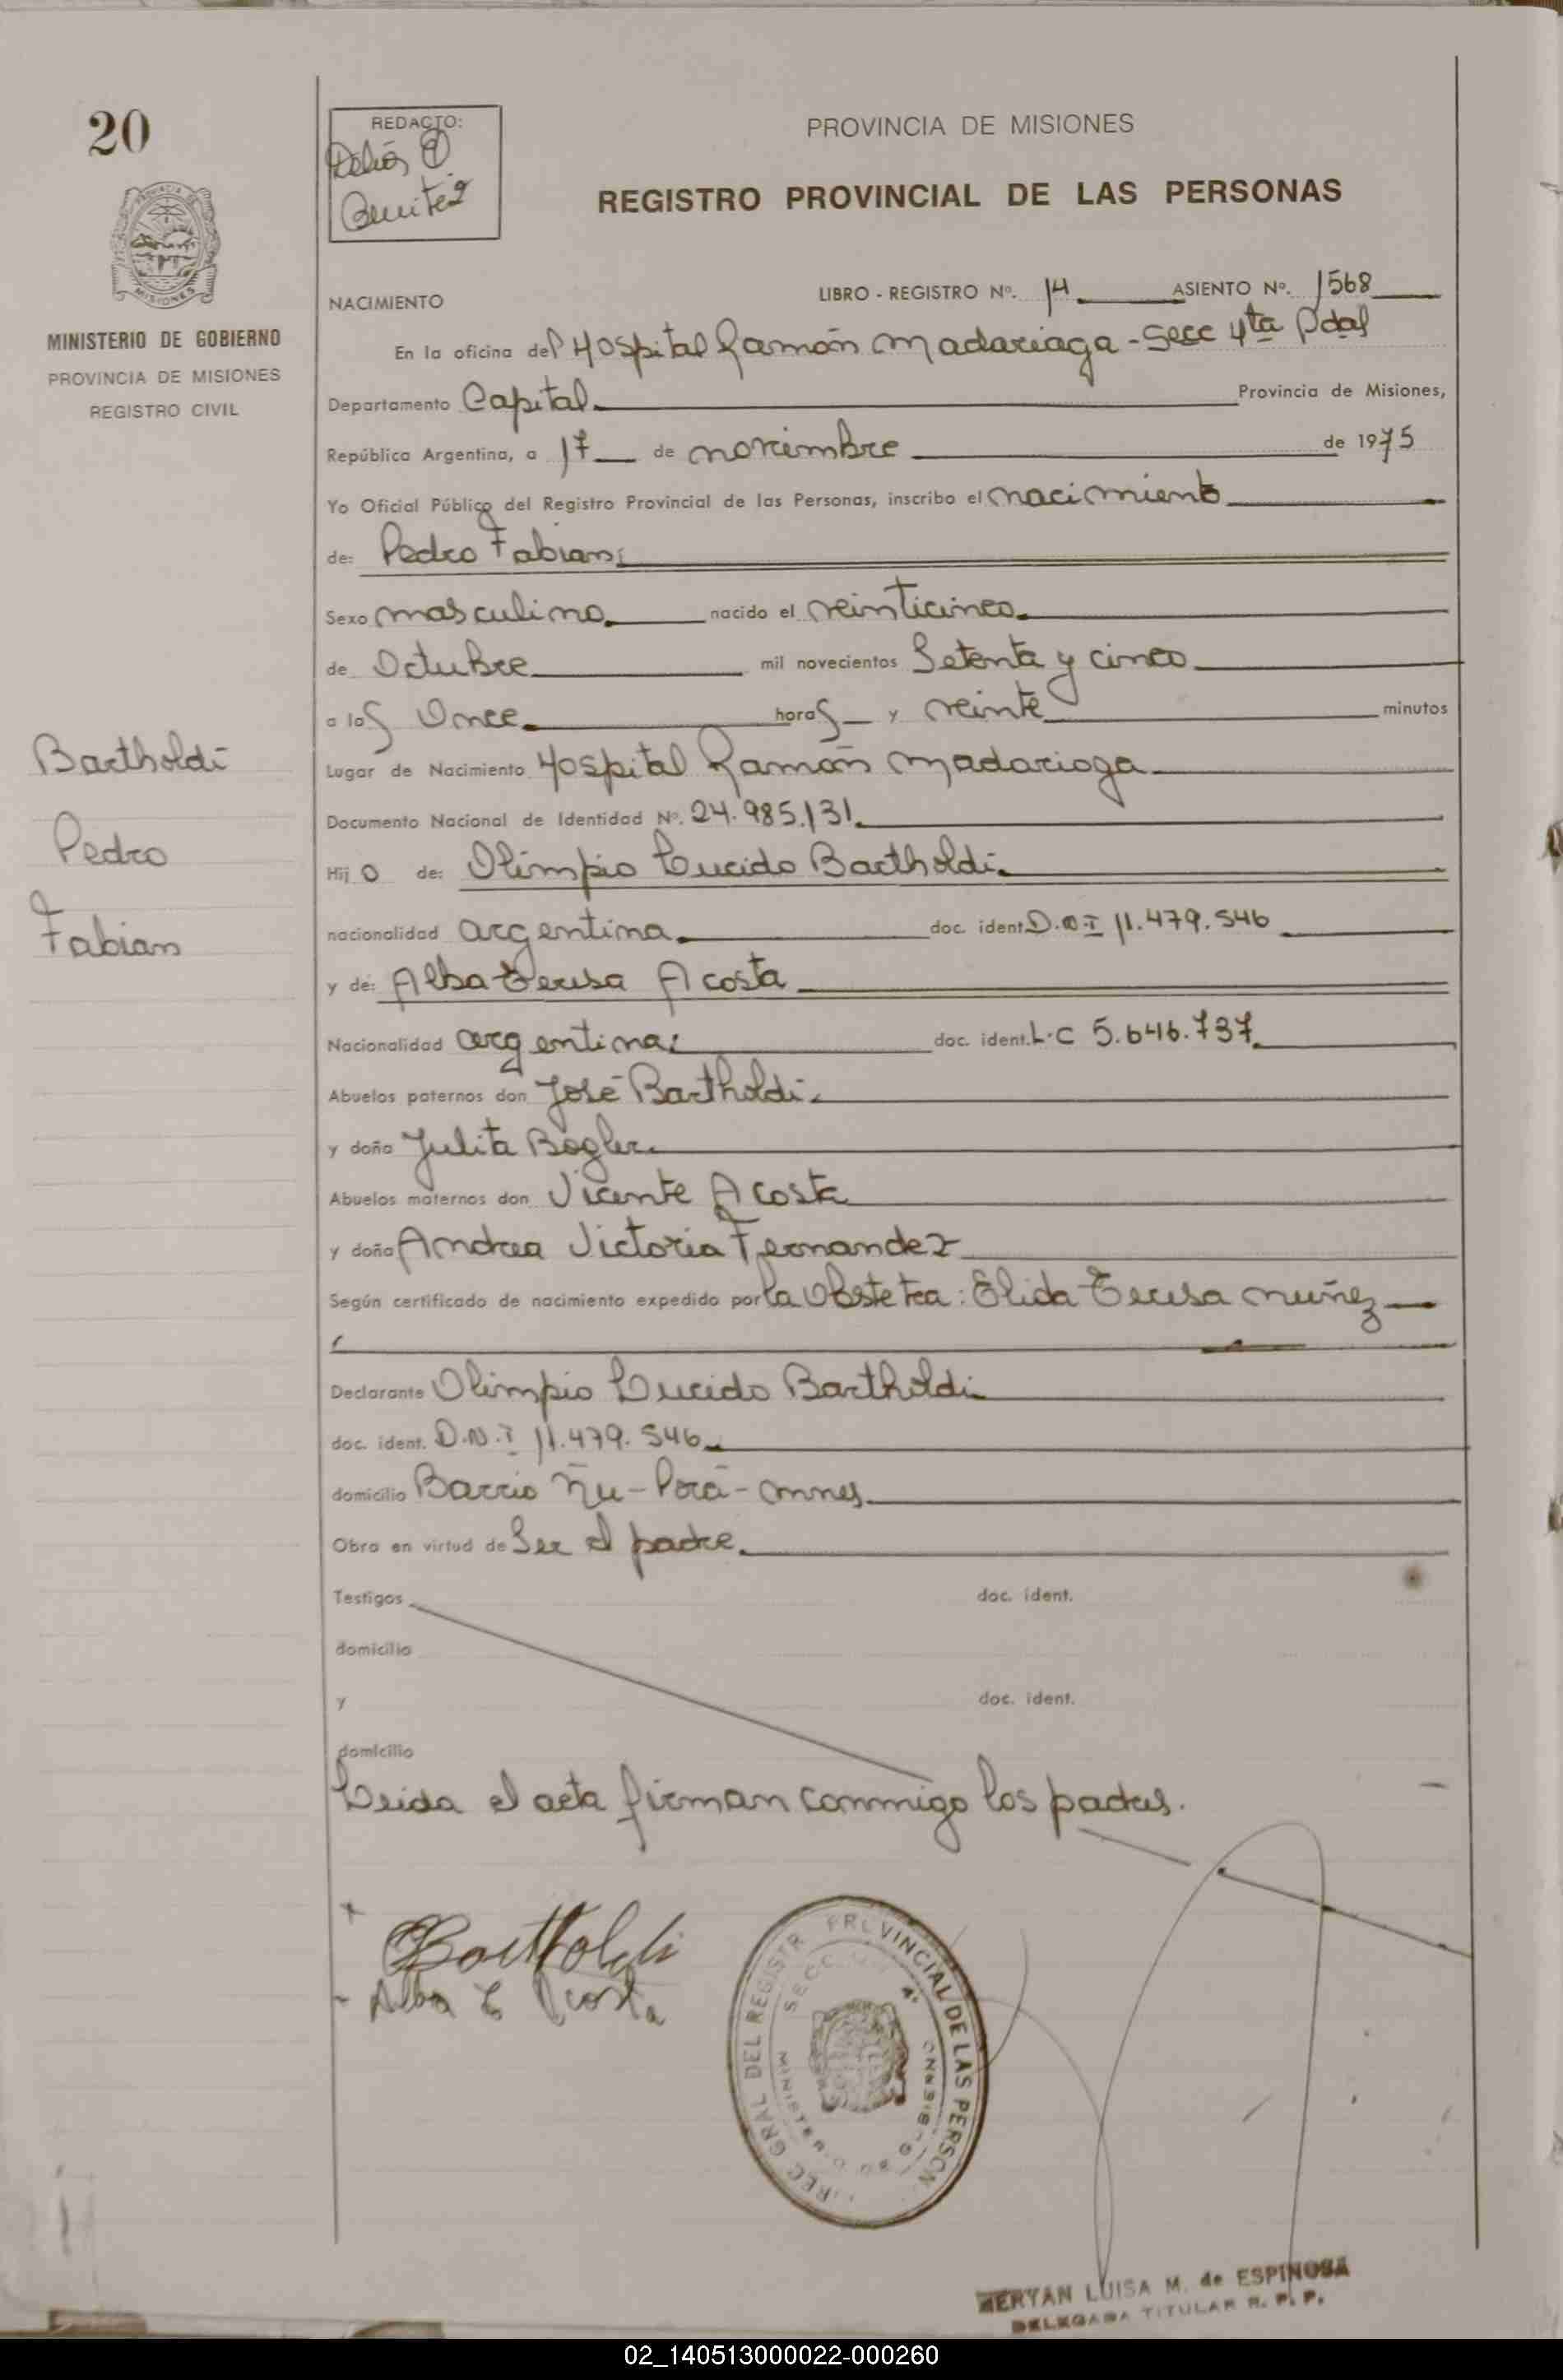 20
MISIONES
MINISTERIO DE GOBIERNO
PROVINCIA DE MISIONES
REGISTRO CIVIL
Bartholdi
Pedro
Fabian
REDACTO:
Benitez
PROVINCIA DE MISIONES
REGISTRO PROVINCIAL DE LAS PERSONAS
NACIMIENTO LIBRO - REGISTRO Nº. 14 ASIENTO Nº. 1568
En la oficina del Hospital Ramón Madariaga - Secc 4ta Pdas
Departamento Capital Provincia de Misiones,
República Argentina, a 17 de noviembre de 1975
Yo Oficial Público del Registro Provincial de las Personas, inscribo el nacimiento
de: Pedro Fabian
Sexo masculino nacido el veinticinco
de Octubre mil novecientos Setenta y cinco
a las Once horas y veinte minutos
Lugar de Nacimiento Hospital Ramón Madariaga
Documento Nacional de Identidad Nº. 24.985.131
Hijo de: Olimpio Lucido Bartholdi
nacionalidad argentina doc. ident. D.N.I 11.479.546
y de: Alba Teresa Acosta
Nacionalidad argentina doc. ident. L.C 5.646.737
Abuelos paternos don José Bartholdi
y doña Julita Bogler
Abuelos maternos don Vicente Acosta
y doña Andrea Victoria Fernandez
Según certificado de nacimiento expedido por la Obstetra: Elida Teresa Nuñez
Declarante Olimpio Lucido Bartholdi
doc. ident. D.N.I 11.479.546
domicilio Barrio Ñu-Porá-
Obra en virtud de Ser el padre
Testigos doc. ident.
domicilio
y doc. ident.
domicilio
Leida el acta firman conmigo los padres.
Bartholdi
Alba T Acosta
GRAL DEL REGISTR PROVINCIAL DE LAS PERSON
SECC 4ª
LUISA M. de ESPINOSA
DELEGADA TITULAR R. P. P.
02_140513000022-000260